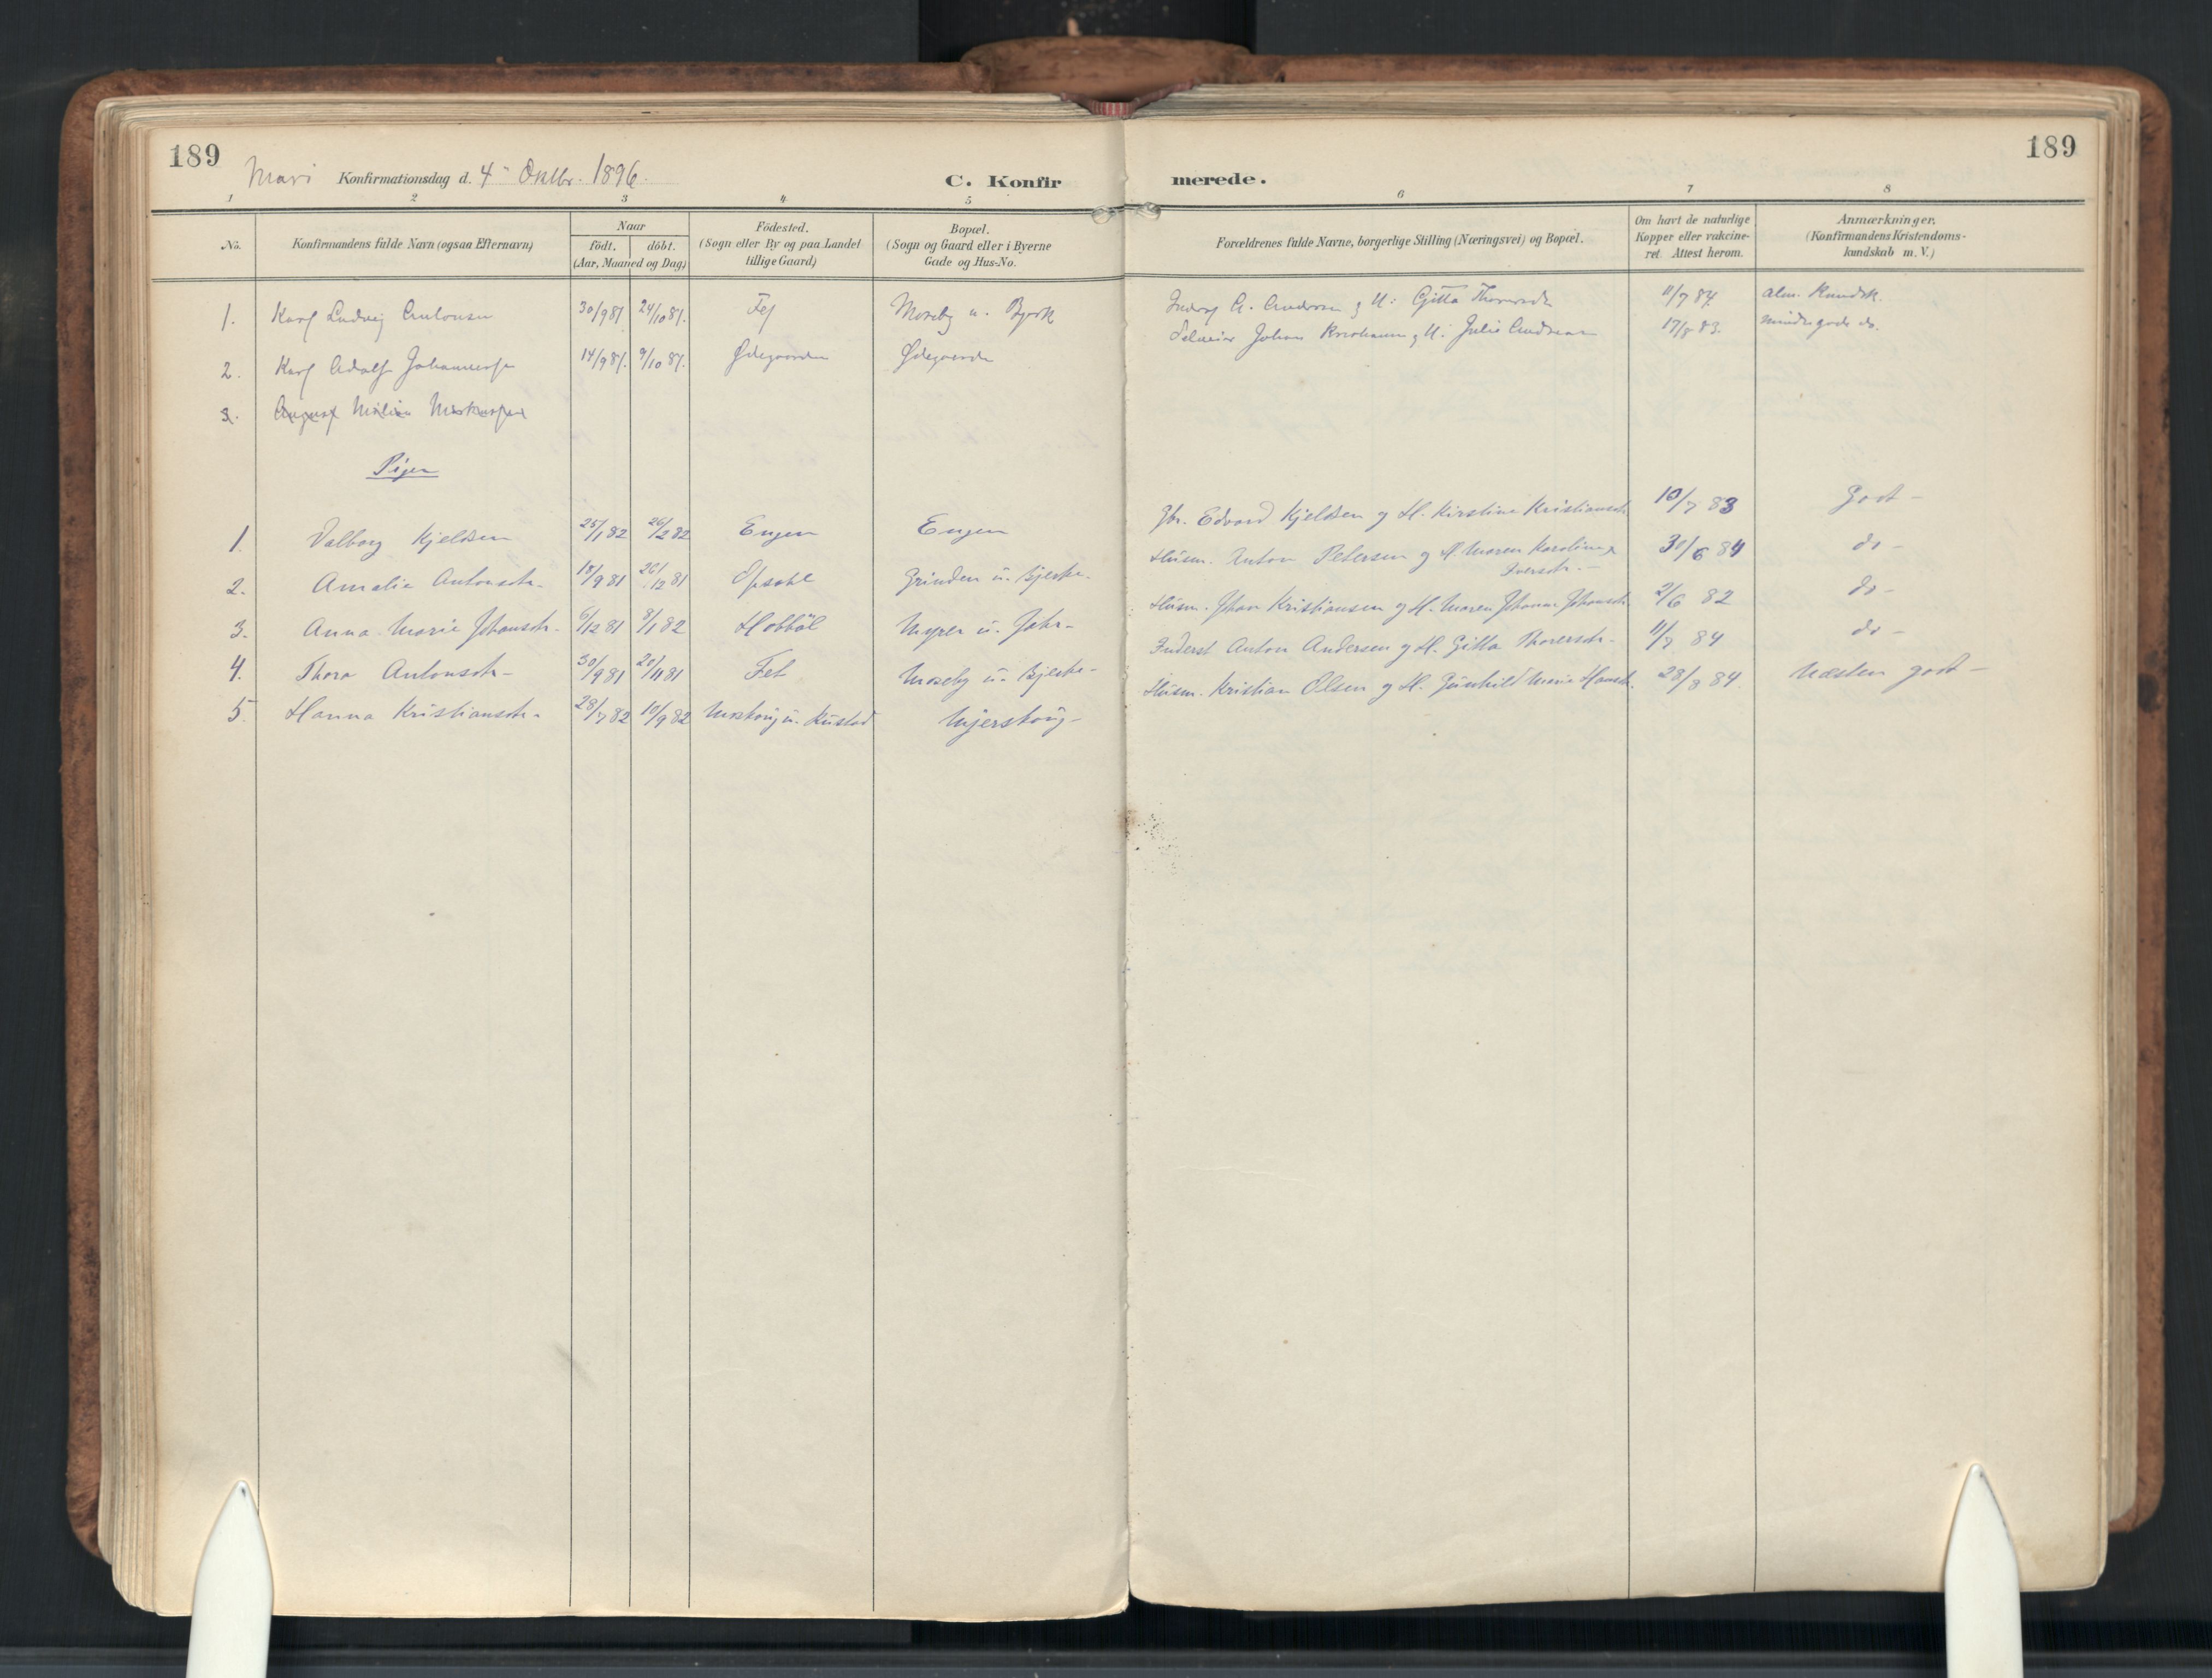 189
189
Mari Konfirmationsdag d. 4de Oktbr. 1896.
C. Konfirmerede.
1 2 3 4 5 6 7 8
No. Konfirmandens fulde Navn (ogsaa Efternavn) Naar födt. döbt. (Aar, Maaned og Dag) Födested. (Sogn eller By og paa Landet tillige Gaard) Bopæl. (Sogn og Gaard eller i Byerne Gade og Hus-No. Forældrenes fulde Navne, borgerlige Stilling (Næringsvei) og Bopæl. Om havt de naturlige Kopper eller vakcineret. Attest herom. Anmærkninger. (Konfirmandens Kristendomskundskab m. V.)
1. Karl Ludvig Antonsen 30/9 81 24/10 81. Fet Moseby u. Bjerk A. Andersen og H: Gitta Thorersdtr 11/7 84 alm. Kundsk.
2. Karl Adolf Johannessen 14/9 81. 9/10 81. Ødegaarden Ødegaarden Selveier Johan og H: Julie Andrea 17/8 83. mindre godt do.
3. August
Piger
1. Valborg Kjeldsen 25/1 82 26/2 82 Engen Engen Gbr. Edvard Kjeldsen og H. Kirstine Kristiansdtr. 10/7 83 Godt -
2. Amalie Antonsdtr. 18/9 81 26/12 81 Opsahl Grinden u. Bjerke - Husm. Anton Petersen og H Maren Karoline Iversdtr. - 30/6 84 do -
3. Anna Marie Johansdtr - 6/12 81 8/1 82 Hobböl Myrer u. Jahr - Husm. Johan Kristiansen og H. Maren Johanne Johansdtr. 2/6 82 do -
4. Thora Antonsdtr - 30/9 81 20/11 81 Fet Moseby u. Bjerke - Inderst Anton Andersen og H. Gitta Thorersdtr - 11/7 84 do -
5. Hanna Kristiansdtr. 28/7 82 10/9 82 u. Rustad Mjerskoug - Husm. Kristian Olsen og H. Gunhild Marie Hansdtr. 28/8 84. Næsten godt -